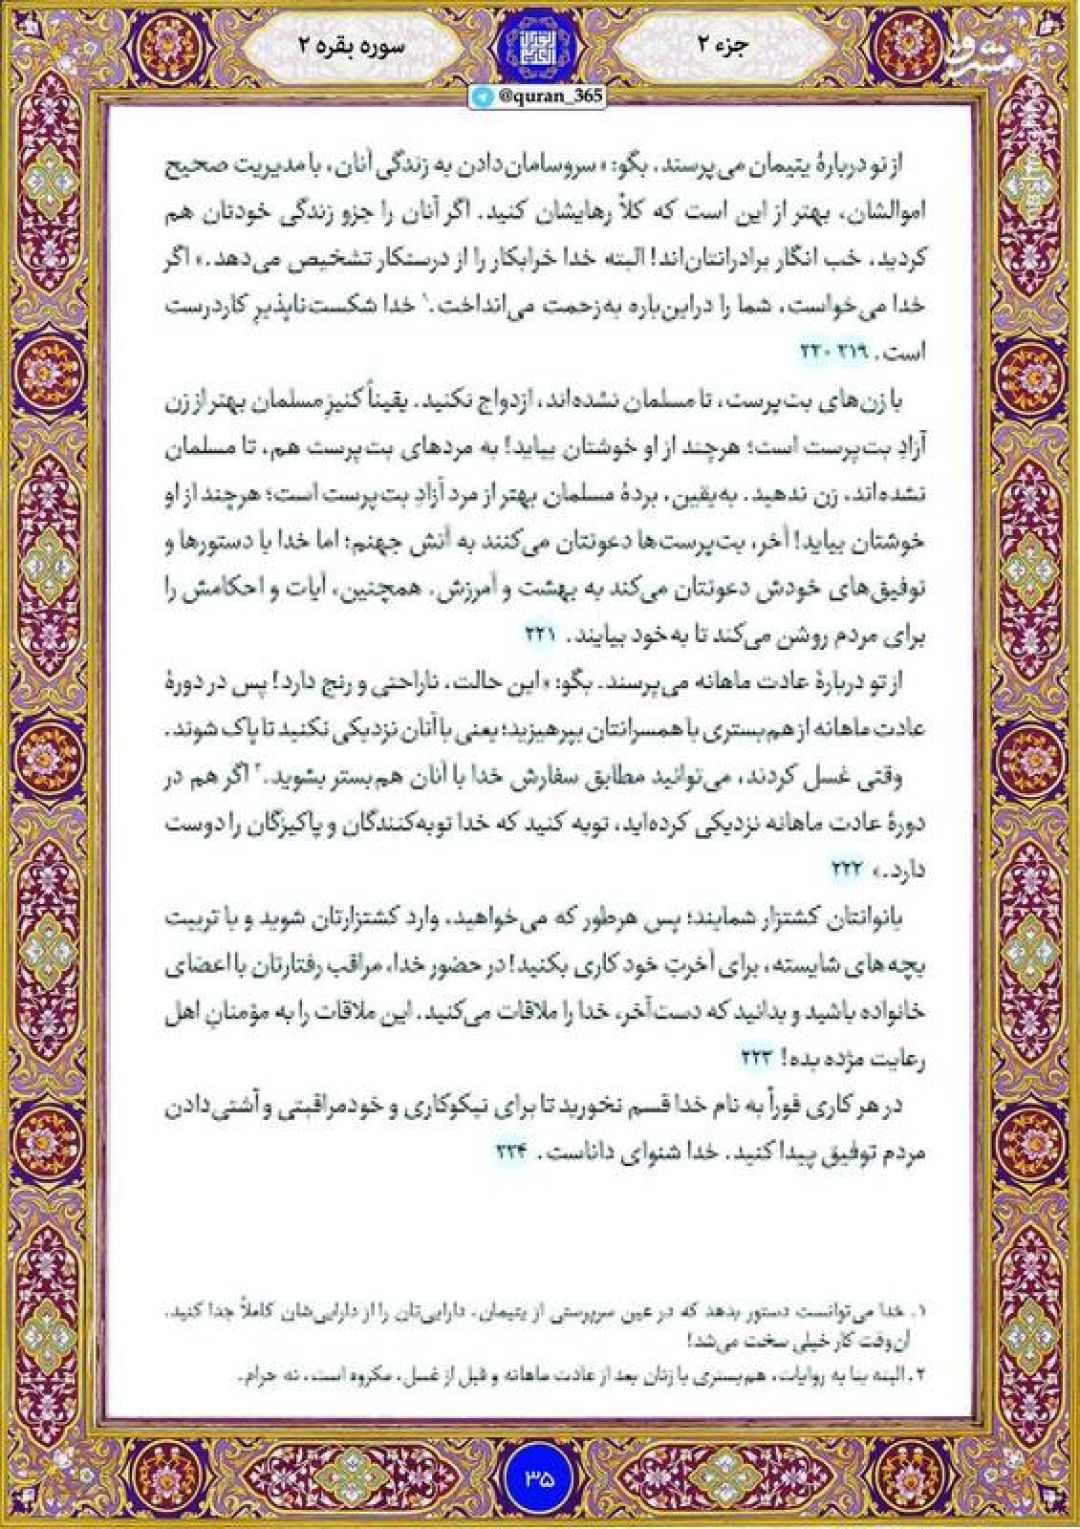 جزء ۲
سوره بقره ۲
@quran_365
مشرق
از تو دربارهٔ یتیمان می‌پرسند. بگو: «سروسامان‌دادن به زندگی آنان، با مدیریت صحیح
اموالشان، بهتر از این است که کلاً رهایشان کنید. اگر آنان را جزو زندگی خودتان هم
کردید، خب انگار برادرانتان‌اند! البته خدا خرابکار را از درستکار تشخیص می‌دهد.» اگر
خدا می‌خواست، شما را دراین‌باره به‌زحمت می‌انداخت.۱ خدا شکست‌ناپذیرِ کاردرست
است. ۲۱۹ ۲۲۰
با زن‌های بت‌پرست، تا مسلمان نشده‌اند، ازدواج نکنید. یقیناً کنیزِ مسلمان بهتر از زن
آزادِ بت‌پرست است؛ هرچند از او خوشتان بیاید! به مردهای بت‌پرست هم، تا مسلمان
نشده‌اند، زن ندهید. به‌یقین، بردهٔ مسلمان بهتر از مرد آزادِ بت‌پرست است؛ هرچند از او
خوشتان بیاید! آخر، بت‌پرست‌ها دعوتتان می‌کنند به آتش جهنم؛ اما خدا با دستورها و
توفیق‌های خودش دعوتتان می‌کند به بهشت و آمرزش. همچنین، آیات و احکامش را
برای مردم روشن می‌کند تا به‌خود بیایند. ۲۲۱
از تو دربارهٔ عادت ماهانه می‌پرسند. بگو: «این حالت، ناراحتی و رنج دارد! پس در دورهٔ
عادت ماهانه از هم‌بستری با همسرانتان بپرهیزید؛ یعنی با آنان نزدیکی نکنید تا پاک شوند.
وقتی غسل کردند، می‌توانید مطابق سفارش خدا با آنان هم‌بستر بشوید.۲ اگر هم در
دورهٔ عادت ماهانه نزدیکی کرده‌اید، توبه کنید که خدا توبه‌کنندگان و پاکیزگان را دوست
دارد.» ۲۲۲
بانوانتان کشتزار شمایند؛ پس هرطور که می‌خواهید، وارد کشتزارتان شوید و با تربیت
بچه‌های شایسته، برای آخرتِ خود کاری بکنید! در حضور خدا، مراقب رفتارتان با اعضای
خانواده باشید و بدانید که دست‌آخر، خدا را ملاقات می‌کنید. این ملاقات را به مؤمنانِ اهل
رعایت مژده بده! ۲۲۳
در هر کاری فوراً به نام خدا قسم نخورید تا برای نیکوکاری و خودمراقبتی و آشتی‌دادن
مردم توفیق پیدا کنید. خدا شنوای داناست. ۲۲۴
۱. خدا می‌توانست دستور بدهد که در عین سرپرستی از یتیمان، دارایی‌تان را از دارایی‌شان کاملاً جدا کنید.
آن‌وقت کار خیلی سخت می‌شد!
۲. البته بنا به روایات، هم‌بستری با زنان بعد از عادت ماهانه و قبل از غسل، مکروه است، نه حرام.
۳۵